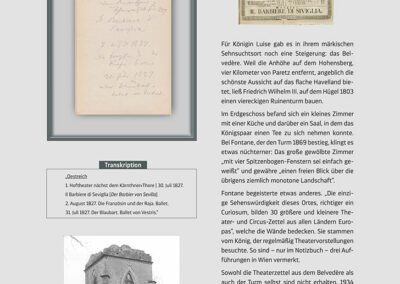 Il Barbiere di
Seviglia
Transkription
„Oestreich
1. Hoftheater nächst dem Kärnthner-Thore | 30. Juli 1827.
Il Barbiere di Seviglia [Der Barbier von Sevilla].
2. August 1827. Die Französin und der Raja. Ballet.
31. Juli 1827. Der Blaubart. Ballet von Vestris.“
IL BARBIERE DI SIVIGLIA.
Für Königin Luise gab es in ihrem märkischen
Sehnsuchtsort noch eine Steigerung: das Bel-
vedère. Weil die Anhöhe auf dem Hohensberg,
vier Kilometer von Paretz entfernt, angeblich die
schönste Aussicht auf das flache Havelland bie-
tet, ließ Friedrich Wilhelm III. auf dem Hügel 1803
einen viereckigen Ruinenturm bauen.
Im Erdgeschoss befand sich ein kleines Zimmer
mit einer Küche und darüber ein Saal, in dem das
Königspaar einen Tee zu sich nehmen konnte.
Bei Fontane, der den Turm 1869 bestieg, klingt es
etwas nüchterner: Das große gewölbte Zimmer
„mit vier Spitzenbogen-Fenstern sei einfach ge-
weißt“ und gewähre „einen freien Blick über die
übrigens ziemlich monotone Landschaft“.
Fontane begeisterte etwas anderes. „Die einzi-
ge Sehenswürdigkeit dieses Ortes, richtiger ein
Curiosum, bilden 30 größere und kleinere Thea-
ter- und Circus-Zettel aus allen Ländern Euro-
pas“, welche die Wände bedecken. Sie stammen
vom König, der regelmäßig Theatervorstellungen
besuchte. So sind – nur im Notizbuch – drei Auf-
führungen in Wien vermerkt.
Sowohl die Theaterzettel aus dem Belvedère als
auch der Turm selbst sind nicht erhalten. 1934